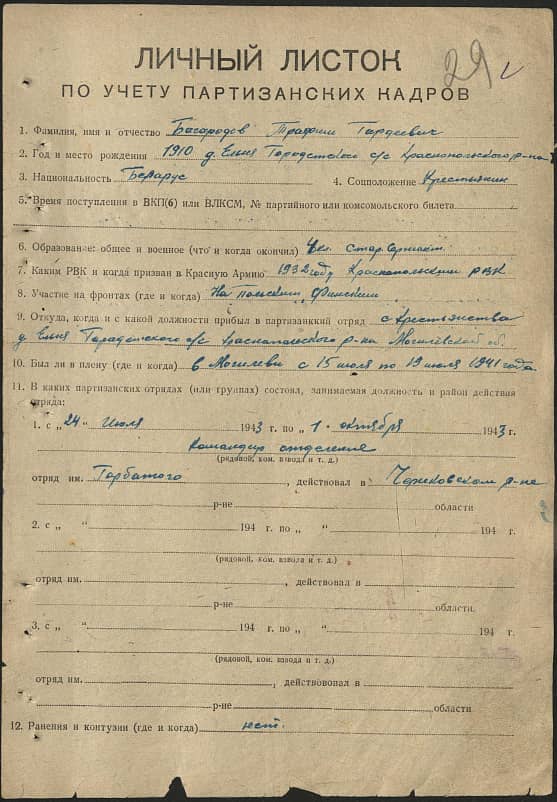 29
ЛИЧНЫЙ ЛИСТОК
ПО УЧЕТУ ПАРТИЗАНСКИХ КАДРОВ
1. Фамилия, имя и отчество Багародов Трофим Гардеевич
2. Год и место рождения 1910 д. Ельня Городетского с/с Краснопольского р-на
3. Национальность Беларус 4. Соцположение Крестьянин
5. Время поступления в ВКП(б) или ВЛКСМ, № партийного или комсомольского билета
6. Образование: общее и военное (что и когда окончил) 4 кл. Стар. сержант
7. Каким РВК и когда призван в Красную Армию 1932 году Краснопольским РВК
8. Участие на фронтах (где и когда) На польским, Финским
9. Откуда, когда и с какой должности прибыл в партизанский отряд с крестьянства
д. Ельня Гарадетского с/с Краснопольского р-на Могилевской об.
10. Был ли в плену (где и когда) в Могилеви с 15 июля по 19 июля 1941 года
11. В каких партизанских отрядах (или группах) состоял, занимаемая должность и район действия
отряда:
1. с „24“ Июля 1943 г. по „1“ октября 1943 г.
командир отделения
(рядовой, ком. взвода и т. д.)
отряд им. Горбатого, действовал в Чериковском р-не
р-не области
2. с „ “ 194 г. по „ “ 194 г.
(рядовой, ком. взвода и т. д.)
отряд им. , действовал в
р-не области.
3. с „ “ 194 г. по „ “ 194 г.
(рядовой, ком. взвода и т. д.)
отряд им. , действовал в
р-не области
12. Ранения и контузии (где и когда) нет.